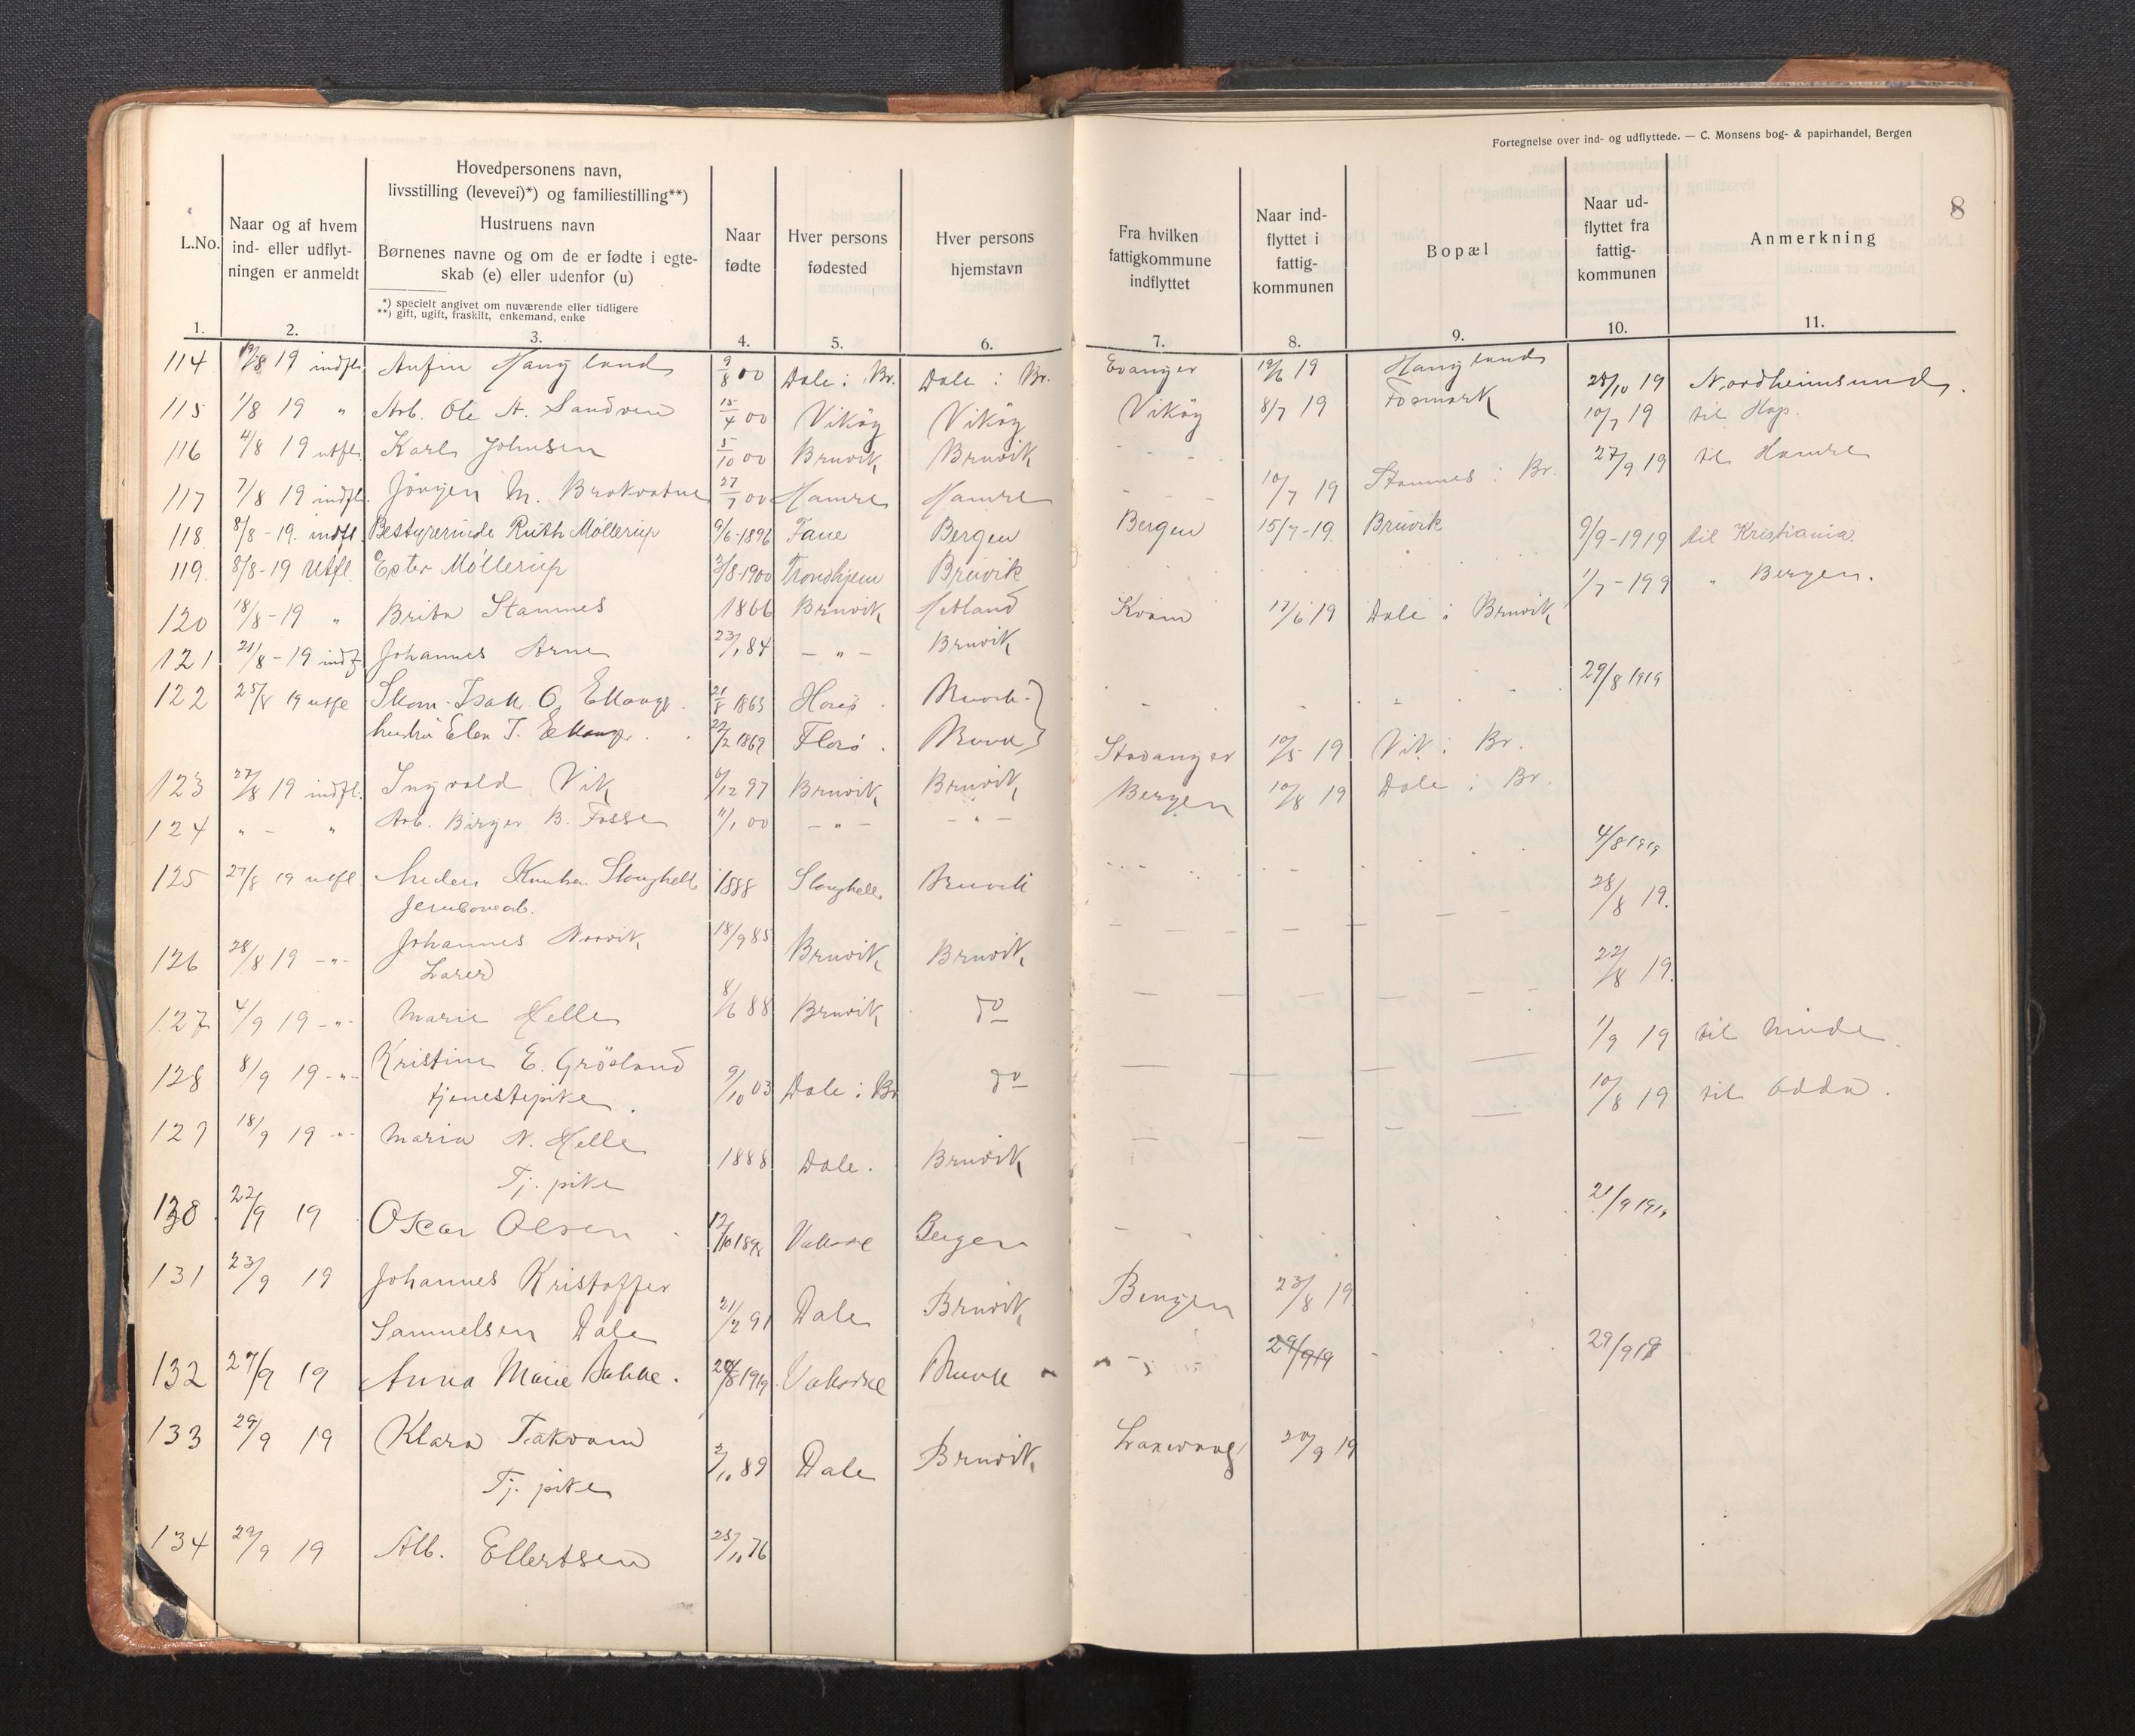 Fortegnelse over ind- og udflyttede. — C. Monsens bog- & papirhandel, Bergen
8
L.No.
Naar og af hvem ind- eller udflyt-ningen er anmeldt
Hovedpersonens navn,
livsstilling (levevei)*) og familiestilling**)
Hustruens navn
Børnenes navne og om de er fødte i egte-
skab (e) eller udenfor (u)
*) specielt angivet om nuværende eller tidligere
**) gift, ugift, fraskilt, enkemand, enke
Naar fødte
Hver persons fødested
Hver persons hjemstavn
Fra hvilken fattigkommune indflyttet
Naar ind-flyttet i fattig-kommunen
Bopæl
Naar ud-flyttet fra fattig-kommunen
Anmerkning
1. 2. 3. 4. 5. 6. 7. 8. 9. 10. 11.
114 8 19 indfl. Anfin Hangland 9/8 00 Dale i Br. Dale i Br. Evanger 19 Hangland
115 1/8 19 " Arb. Ole A. Sandven 15/4 00 Viköy Viköy Viköy 8/7 19 Fosmark 25/10 19 Nordheimsund.
116 4/8 19 utfl. Karl Johnsen 5/10 00 Bruvik Bruvik 10/7 19 til Hop.
117 7/8 19 indfl. Jörgen M. Brakvatne 27/7 00 Hamre Hamre 10/7 19 Stamnes i Br. 27/9 19 til Hamre
118 8/8-19. indfl. Bestyrerinde Ruth Möllerup 9/6-1896 Fane Bergen Bergen 15/7-19. Bruvik 9/9-1919 til Kristiania.
119. 8/8-19 Utfl. Ester Möllerup 3/8-1900 Trondhjem Bruvik 1/7-199 " Bergen.
120 18/8-19 " Brita Stamnes 1866 Bruvik Kvam 17/6 19 Dale i Bruvik
121 21/8-19 indf. Johannes Arne 23/1 84 - " - Bruvik
122 25/8 19 utfl Isak O. 21/8 1865 29/8 1919
hustru T. 1869 Florö
Stavanger 10/5 19 Vik i Br.
123 27/8 19 indfl. Ingvald Vik 6/12 97 Bruvik Bruvik Bergen 10/8 19 Dale i Br.
124 " - " Arb. Birger B. Fosse 11/1 00 - " - - " -
125 27/8 19 utfl Knutsen 1888 Bruvik 4/8 1919
126 28/8 19 - " - Johannes 18/9 85 Bruvik Bruvik 28/8 19.
Lærer
127 4/9 19 - " - Marie Helle 8/6 88 Bruvik do 22/8 19.
128 8/9 19 - " - Kristine E. Grösland 9/10 03 Dale i Br do 1/9 19 til Minde.
tjenestepike.
129 18/9 19 - " - Maria N. Helle 1888 Dale. Bruvik 10/8 19 til Odda.
Tj. pike
130 22/9 19 Oscar Olsen Bergen 21/9 1919
131 23/9 19 Johannes Kristoffer
Samuelsen Dale 21/2 91 Dale Bruvik Bergen 23/8 19
132 27/9 19 Anna Marie 8 1919 29/9 19 29/9 19
133 29/9 19 Klara Takvam 3/10 89 Dale Bruvik 20/9 19
Tj. pike
134 29/9 19 Alb. Ellertsen 25/10 76